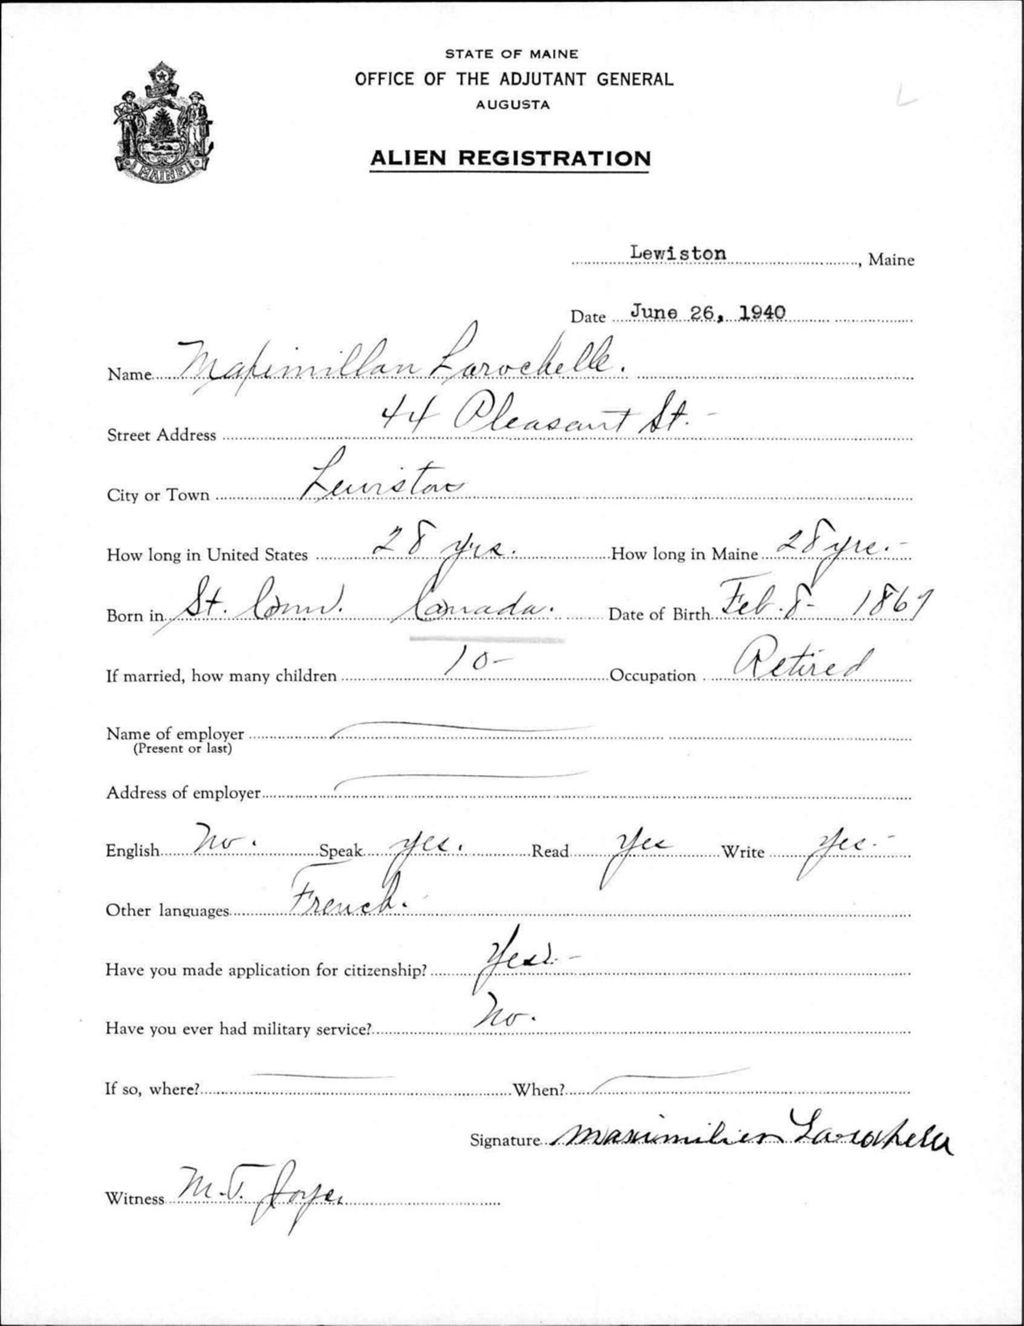 STATE OF MAINE
OFFICE OF THE ADJUTANT GENERAL
AUGUSTA
ALIEN REGISTRATION
MAINE
Lewiston, Maine
Date June 26, 1940
Name Maximillan Larochelle.
Street Address 44 Pleasant St. -
City or Town Lewiston
How long in United States 28 yrs. How long in Maine 28 yrs. -
Born in St. Canada. Date of Birth Feb. 8 - 1867
If married, how many children 10 - Occupation Retired
Name of employer
(Present or last)
Address of employer
English No. Speak yes. Read Yes Write Yes. -
Other languages French.
Have you made application for citizenship? Yes. -
Have you ever had military service? No.
If so, where? When?
Signature Maximilien Larochelle
Witness M. T. Joyce